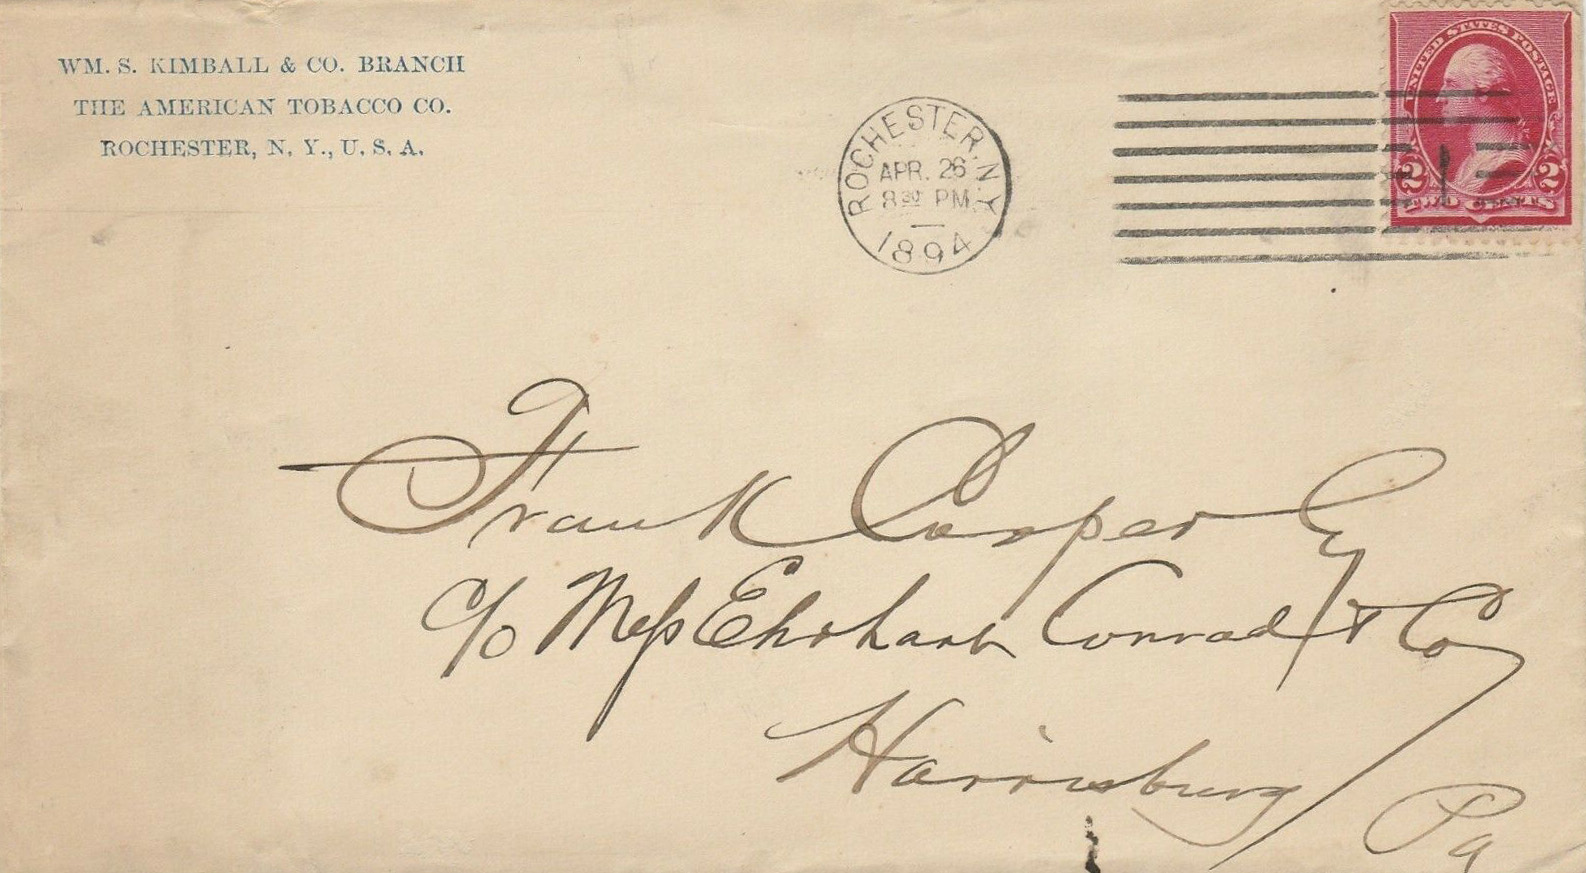 WM. S. KIMBALL & CO. BRANCH
THE AMERICAN TOBACCO CO.
ROCHESTER, N. Y., U. S. A.
ROCHESTER, N.Y.
APR. 26
8 30 PM
1894
UNITED STATES POSTAGE
2 2
TWO CENTS
Frank Cooper
c/o Mess Ehrhart Conrad & Co
Harrisburg
Pa